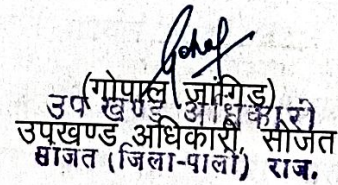 (गोपाल जांगिड़)
उप खण्ड अधिकारी
उपखण्ड अधिकारी, सोजत
सोजत (जिला-पाली) राज.